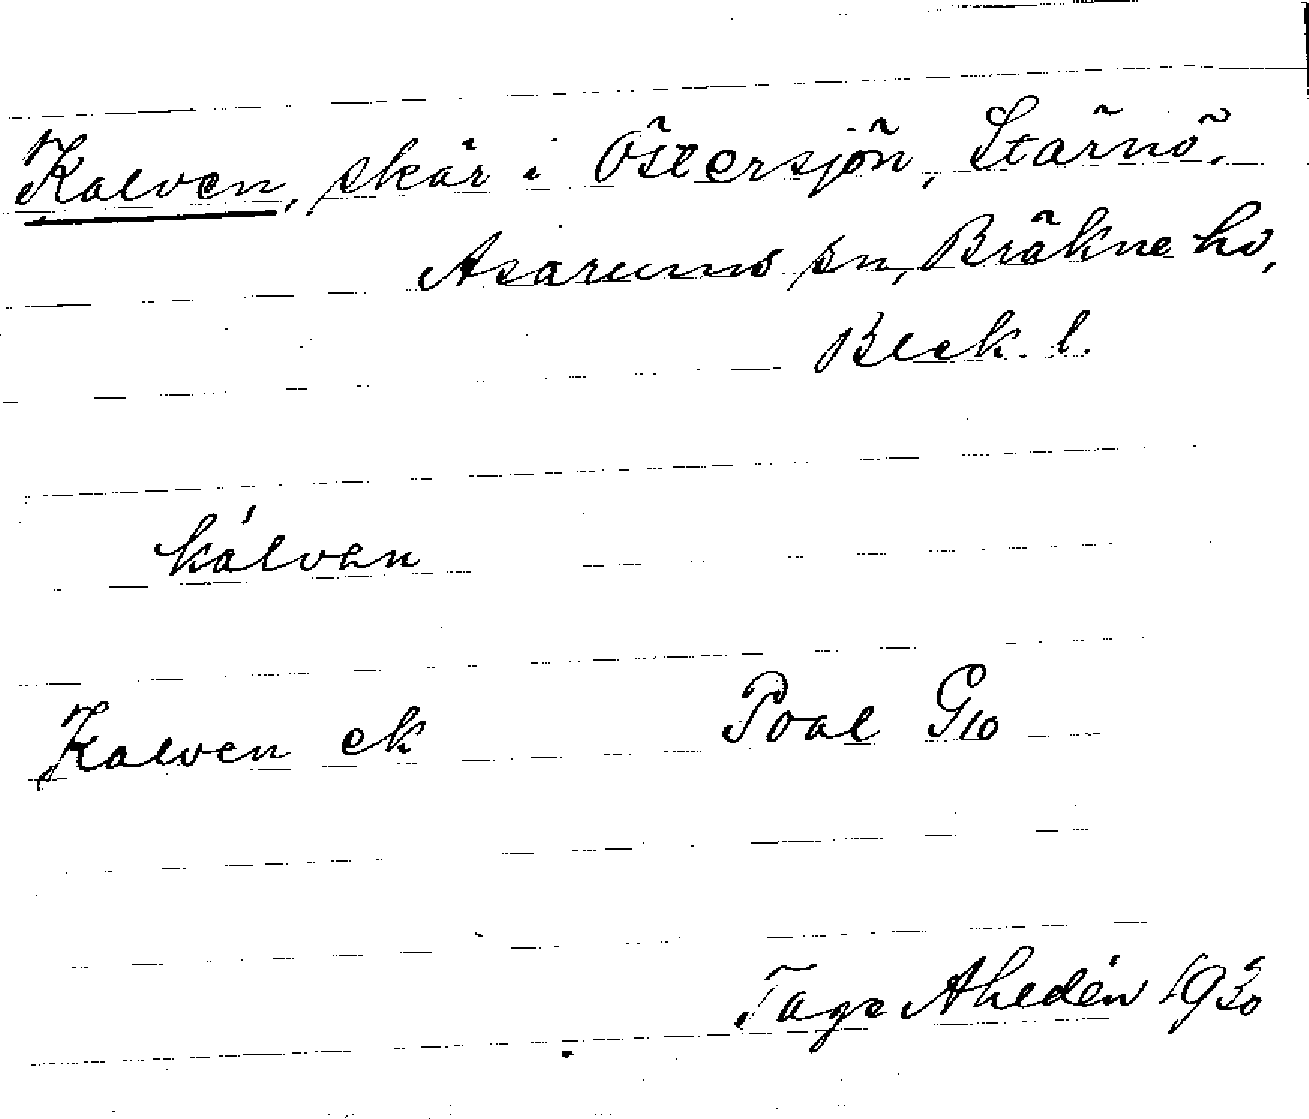 Kalven, skär i Östersjön, Stärnö.
Asarums sn, Bräkne hd,
Blek. l.
kálvan
Kalven ek Poal G10
Tage Ahldén 1930